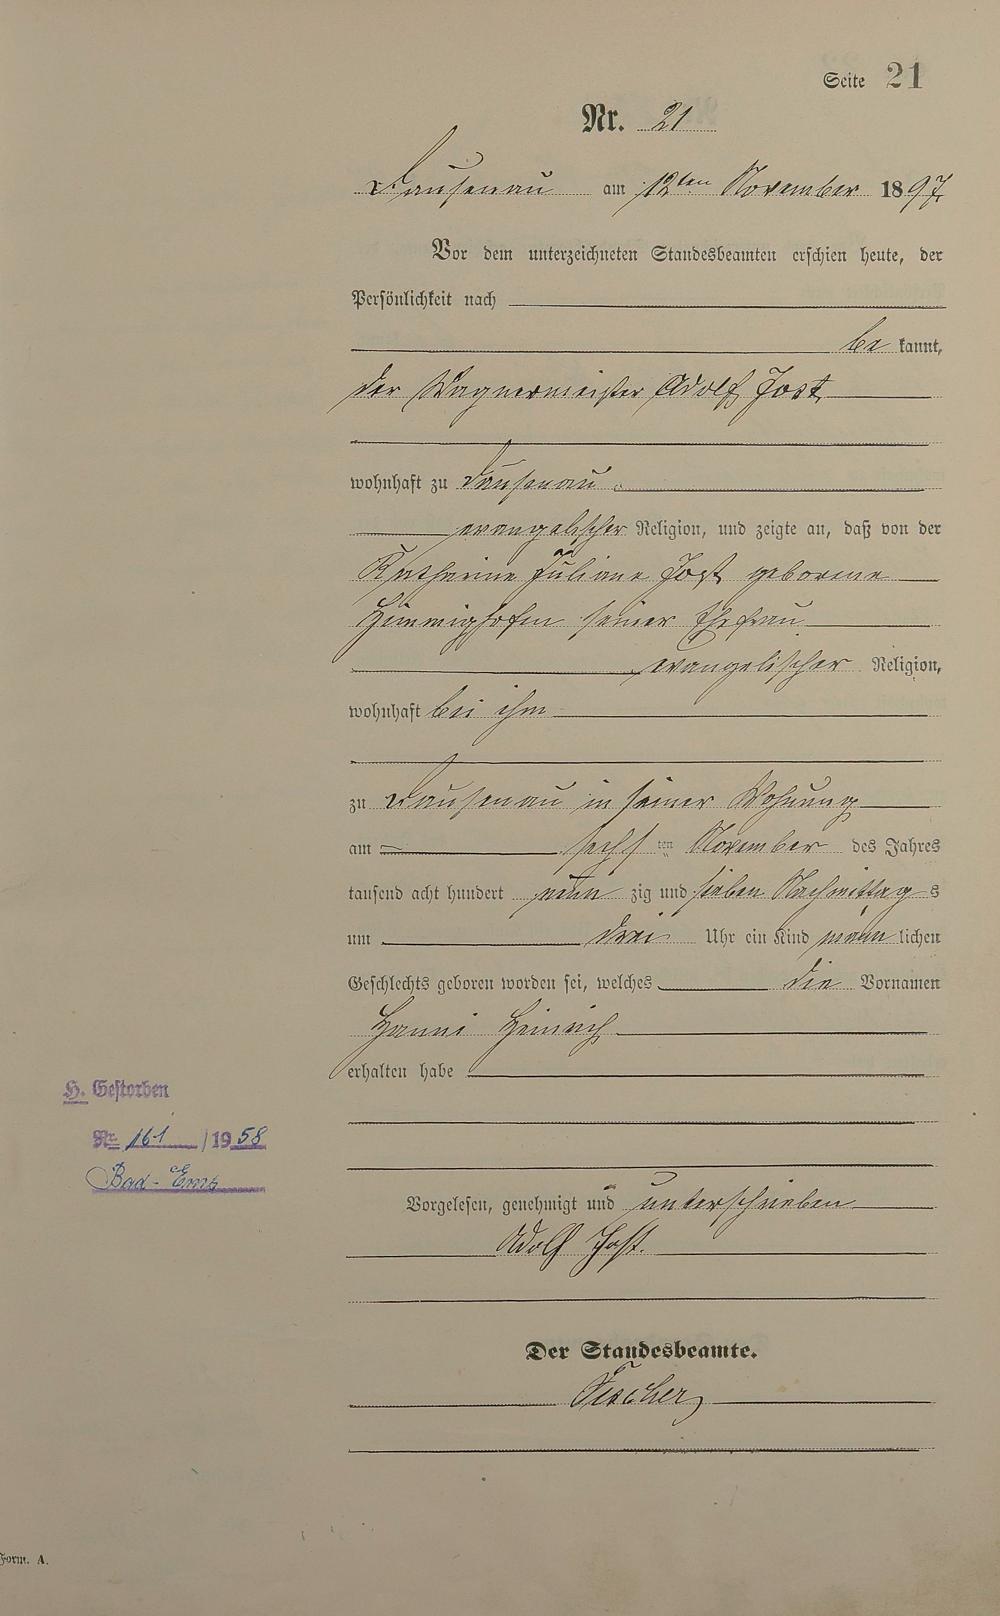 Seite 21
Nr. 21
Dausenau am 12ten November 1897
Vor dem unterzeichneten Standesbeamten erschien heute, der
Persönlichkeit nach
be kannt,
der Wagnermeister Adolf Jost
wohnhaft zu Dausenau
evangelischer Religion, und zeigte an, daß von der
Katharine Juliane Jost geborene
Himmighofen seiner Ehefrau
evangelischer Religion,
wohnhaft bei ihm
zu Dausenau in seiner Wohnung
am sechs ten November des Jahres
tausend acht hundert neun zig und sieben Nachmittag s
um drei Uhr ein Kind männ lichen
Geschlechts geboren worden sei, welches die Vornamen
Heinrich
erhalten habe
H. Gestorben
Nr. 161 / 1958
Bad-Ems
Vorgelesen, genehmigt und unterschrieben
Adolf Jost.
Der Standesbeamte.
Fischer
Form. A.